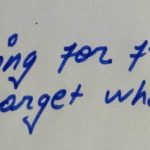 ng for
arget wh